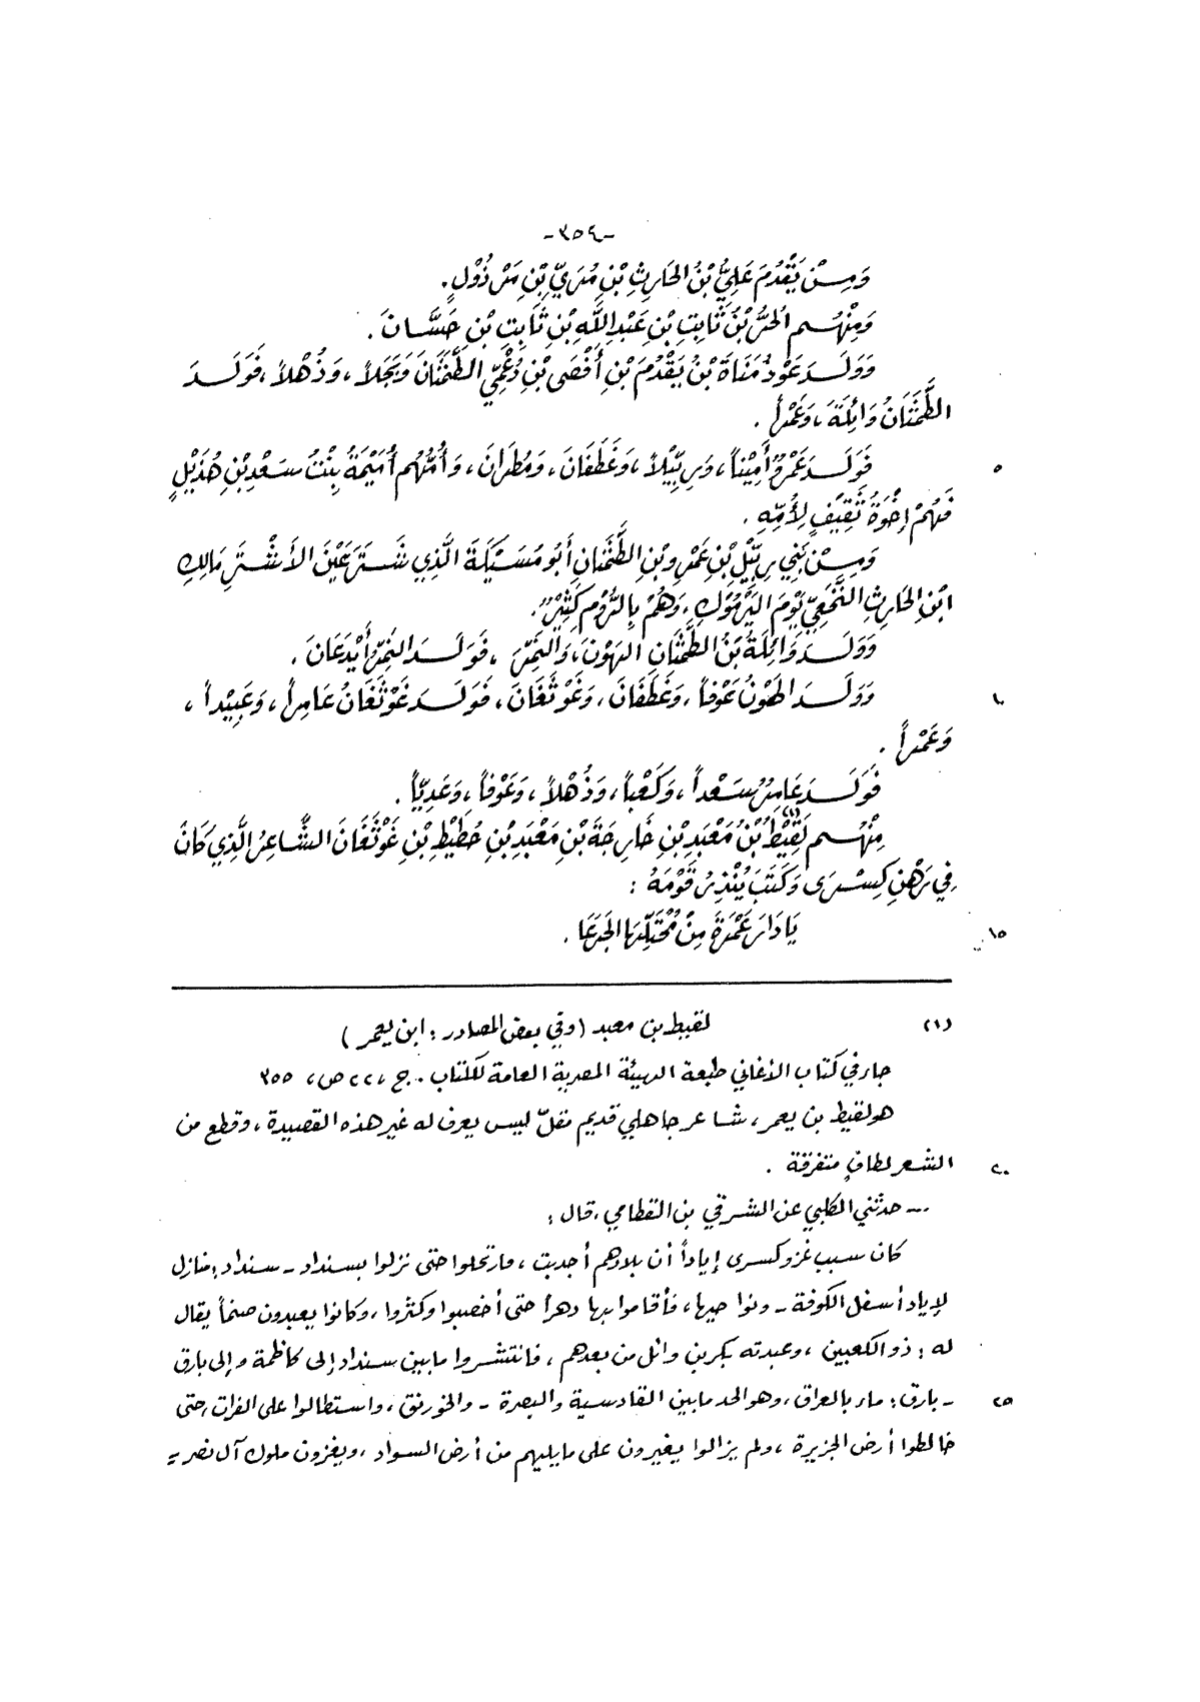 -٣٥٤-
وَمِنْ يَقْدُمَ عَلِيُّ بْنُ الحَارِثِ بْنِ مُرَيِّ بْنِ مَرْ ذُوْلٍ.
وَمِنْهُم الحُرُّ بْنُ ثَابِتِ بْنِ عَبْدِ اللَّهِ بْنِ ثَابِتِ بْنِ حَسَّانَ .
وَوَلَدَ عَوْذُ مَنَاةَ بْنُ يَقْدُمَ بْنِ أَفْصَى بْنِ دُعْمِيِّ الطَّمَثَانَ وَبَجَلاً ، وَذُهْلاً ، فَوَلَدَ
الطَّمَثَانُ وَائِلَةَ ، وَعَمْراً .
٥ فَوَلَدَ عَمْرٌو أَمِيْناً ، وَرِبِّيْلاً ، وَغَطَفَانَ ، وَمُطَرَانَ ، وَأُمُّهُم أُمَيْمَةُ بِنْتُ سَعْدِ بْنِ هُذَيْلٍ
فَهُمْ إِخْوَةُ ثَقِيْفٍ لِأُمِّهِ .
وَمِنْ بَنِي رِبِّيْلِ بْنِ عَمْرِو بْنِ الطَّمَثَانِ أَبُو مُسَيْكَةَ الَّذِي شَتَرَ عَيْنَ الأَشْتَرِ مَالِكِ
ابْنِ الحَارِثِ النَّخَعِيِّ يَوْمَ اليَرْمُوْكِ ، وَهُمْ بِالرُّوْمِ كَثِيْرٌ.
وَوَلَدَ وَائِلَةُ بْنُ الطَّمَثَانِ الهَوْنَ ، وَالنَّمِرَ ، فَوَلَدَ النَّمِرُ أَيْدَعَانَ .
١٠ وَوَلَدَ الهَوْنُ عَوْفاً ، وَغَطَفَانَ ، وَغَوْثَغَانَ ، فَوَلَدَ غَوْثَغَانُ عَامِراً ، وَعَبِيْداً ،
وَعَمْراً .
فَوَلَدَ عَامِرٌ سَعْداً ، وَكَعْباً ، وَذُهْلاً ، وَعَوْفاً ، وَعَدِيّاً .
مِنْهُم لَقِيْطُ(١) بْنُ مَعْبَدِ بْنِ خَارِجَةَ بْنِ مَعْبَدِ بْنِ حُطَيْطِ بْنِ غَوْثَغَانَ الشَّاعِرُ الَّذِي كَانَ
فِي رَهْنِ كِسْرَى وَكَتَبَ يُنْذِرُ قَوْمَهُ :
١٥ يَا دَارَ عَمْرَةَ مِنْ مُحْتَلِّهَا الجَرَعَا .
(١) لقيط بن معبد (وفي بعض المصادر : ابن يعمر)
جاء في كتاب الأغاني طبعة الهيئة المصرية العامة للكتاب . ج ، ٢٢ ص ، ٣٥٥
هو لقيط بن يعمر ، شاعر جاهلي قديم مقلّ ليس يعرف له غير هذه القصيدة ، وقطع من
٢٠ الشعر لطافٍ متفرقة .
... حدثني الكلبي عن الشرقي بن القطامي ، قال :
كان سبب غزو كسرى إياداً أن بلادهم أجدبت ، فارتحلوا حتى نزلوا بسنداد - سنداد : منازل
لإياد أسفل الكوفة - ونواحيها ، فأقاموا بها دهراً حتى أخصبوا وكثروا ، وكانوا يعبدون صنماً يقال
له : ذو الكعبين ، وعبدته بكر بن وائل من بعدهم ، فانتشروا ما بين سنداد إلى كاظمة وإلى بارق
٢٥ - بارق : ماء بالعراق ، وهو الحد ما بين القادسية والبصرة - والخورنق ، واستطالوا على الفرات ، حتى
خالطوا أرض الجزيرة ، ولم يزالوا يغيرون على ما يليهم من أرض السواد ، ويغزون ملوك آل نصر =